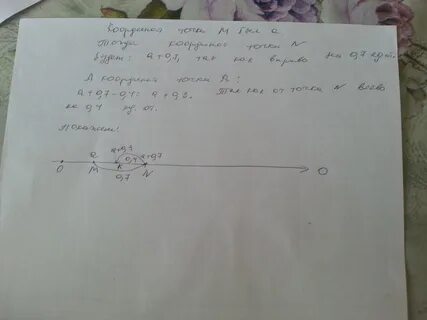 Координата точки M был a.
Тогда координат точки N
будет: a+0,7, так как вправо на 0,7 ед.
А координат точки K:
a+0,7-0,4= a+0,3. Так как от точки N влево
на 0,4 ед. от.
Покажем:
a+0,3
a 0,4 a+0,7
0 M K N
0,7